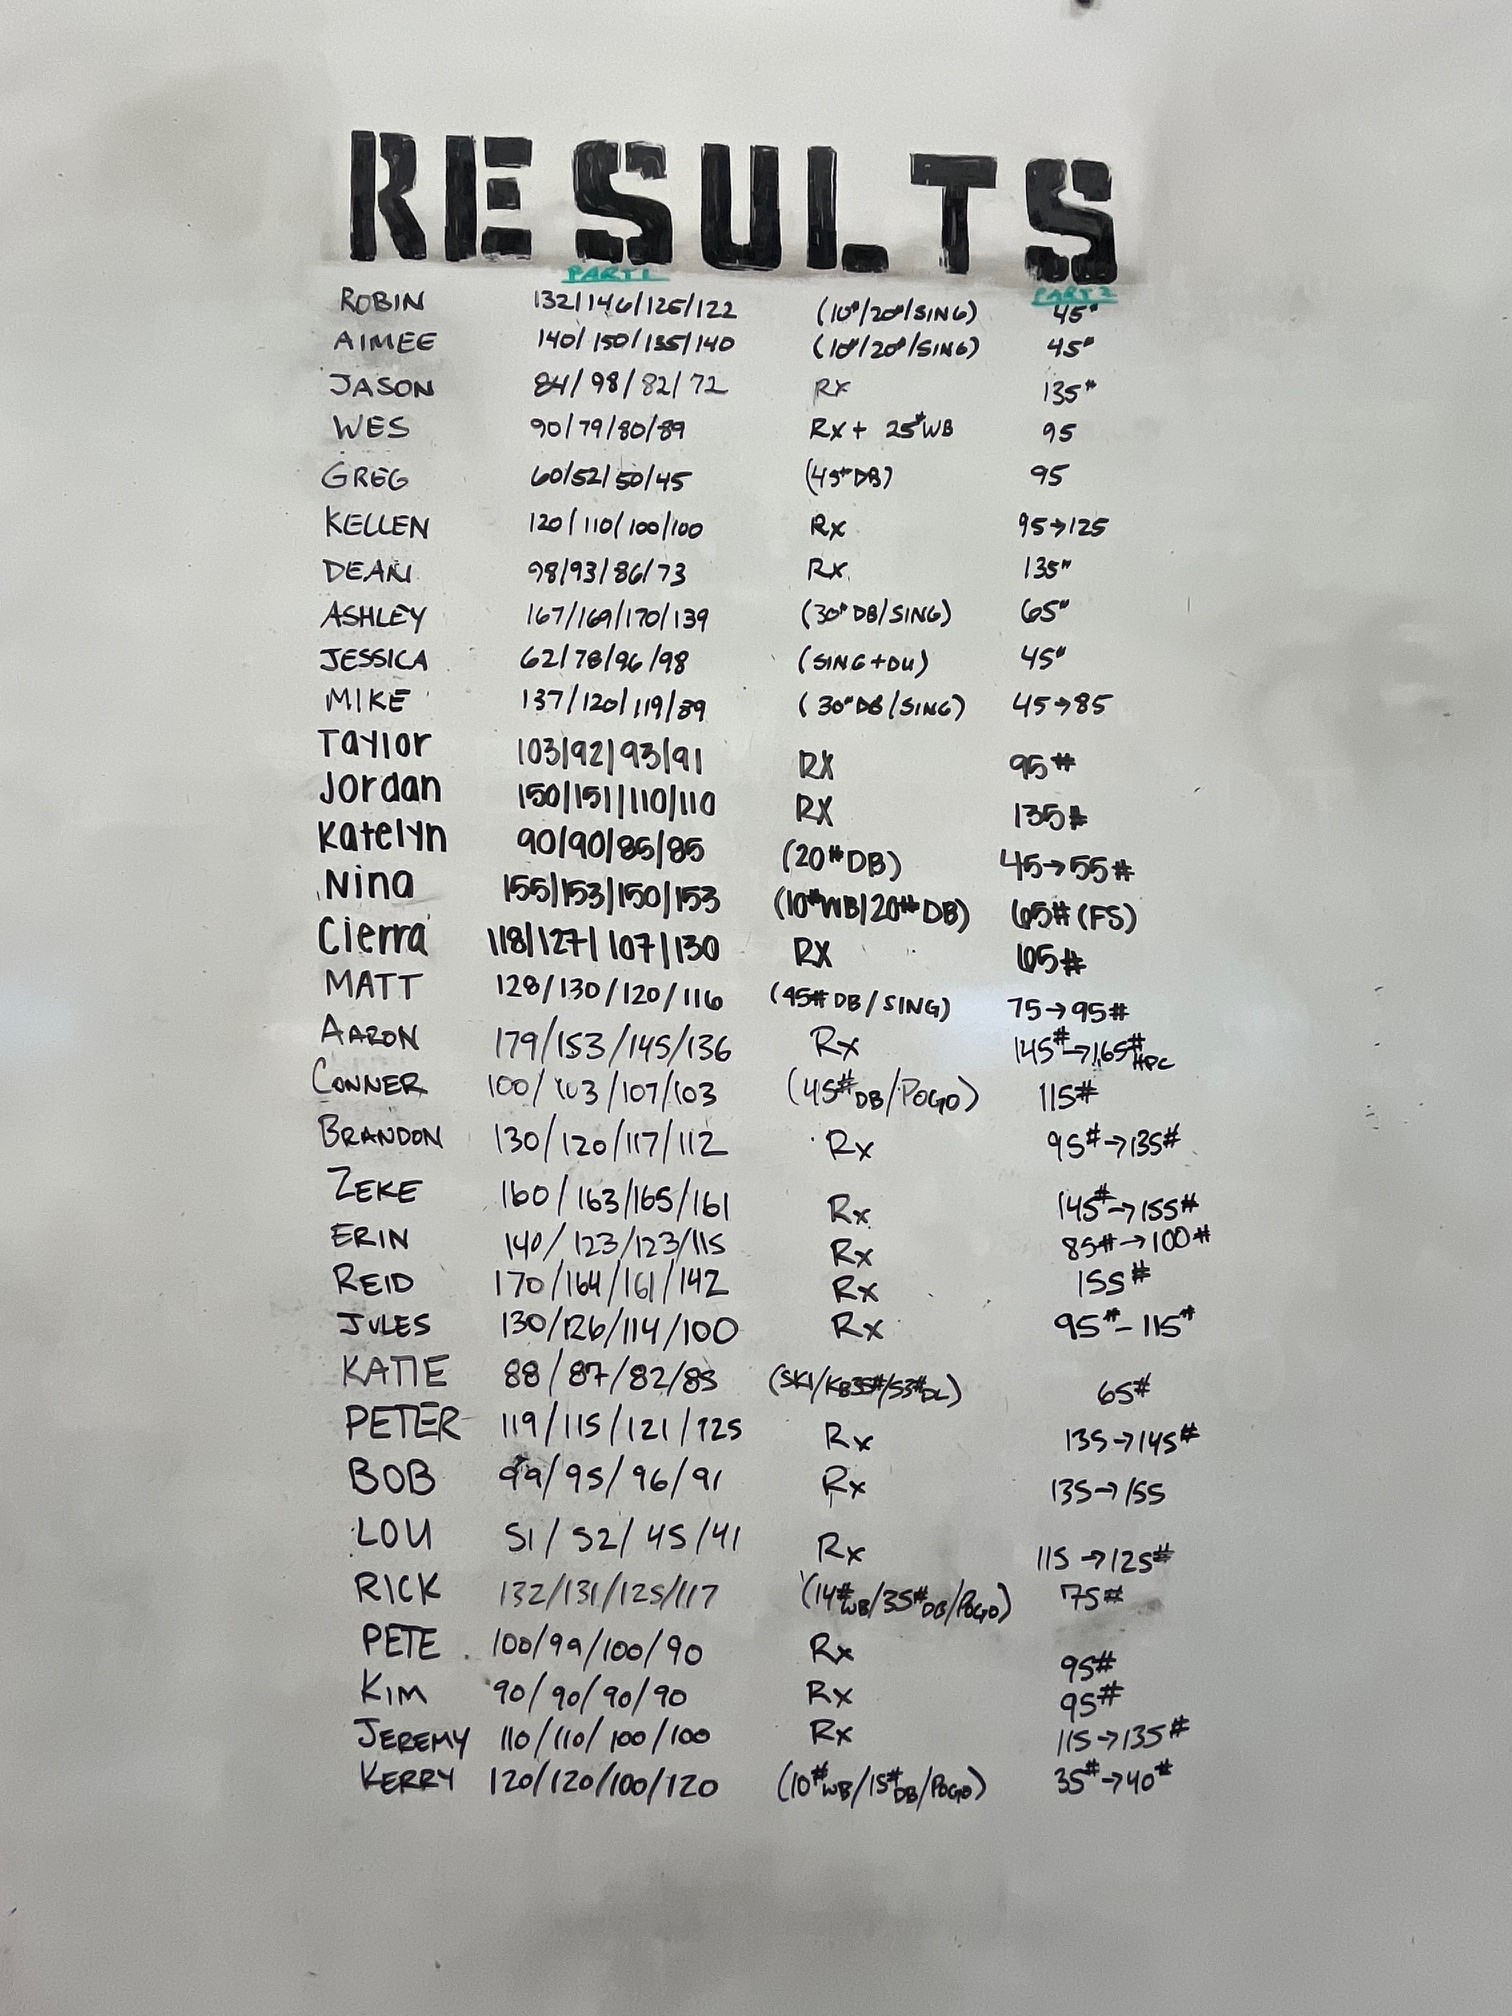 RESULTS
PART 1 PART 2
ROBIN 132/146/125/122 (10#/20#/SING) 45#
AIMEE 140/150/135/140 (10#/20#/SING) 45#
JASON 84/98/82/72 RX 135#
WES 90/79/80/89 RX + 25#WB 95
GREG 60/52/50/45 (45#DB) 95
KELLEN 120/110/100/100 RX 95→125
DEAN 98/93/86/73 RX 135#
ASHLEY 167/169/170/139 (30#DB/SING) 65#
JESSICA 62/78/96/98 (SING+DU) 45#
MIKE 137/120/119/89 (30#DB/SING) 45→85
Taylor 103/92/93/91 RX 95#
Jordan 150/151/110/110 RX 135#
Katelyn 90/90/85/85 (20#DB) 45→55#
Nina 155/153/150/153 (10#WB/20#DB) 65#(FS)
Cierra 118/127/107/130 RX #
MATT 128/130/120/116 (45#DB/SING) 75→95#
AARON 179/153/145/136 Rx 145#→165# HPC
CONNER 100/103/107/103 (45#DB/POGO) 115#
BRANDON 130/120/117/112 Rx 95#→135#
ZEKE 160/163/165/161 Rx 145#→155#
ERIN 140/123/123/115 Rx 85#→100#
REID 170/164/161/142 Rx 155#
JULES 130/126/114/100 Rx 95#-115#
KATIE 88/87/82/85 (SKI/KB35#/53#DL) 65#
PETER 119/115/121/125 Rx 135→145#
BOB 99/95/96/91 Rx 135→155
LOU 51/52/45/41 Rx 115→125#
RICK 132/131/125/117 (14#WB/35#DB/POGO) 75#
PETE 100/99/100/90 Rx 95#
KIM 90/90/90/90 Rx 95#
JEREMY 110/110/100/100 Rx 115→135#
KERRY 120/120/100/120 (10#WB/15#DB/POGO) 35#→40#